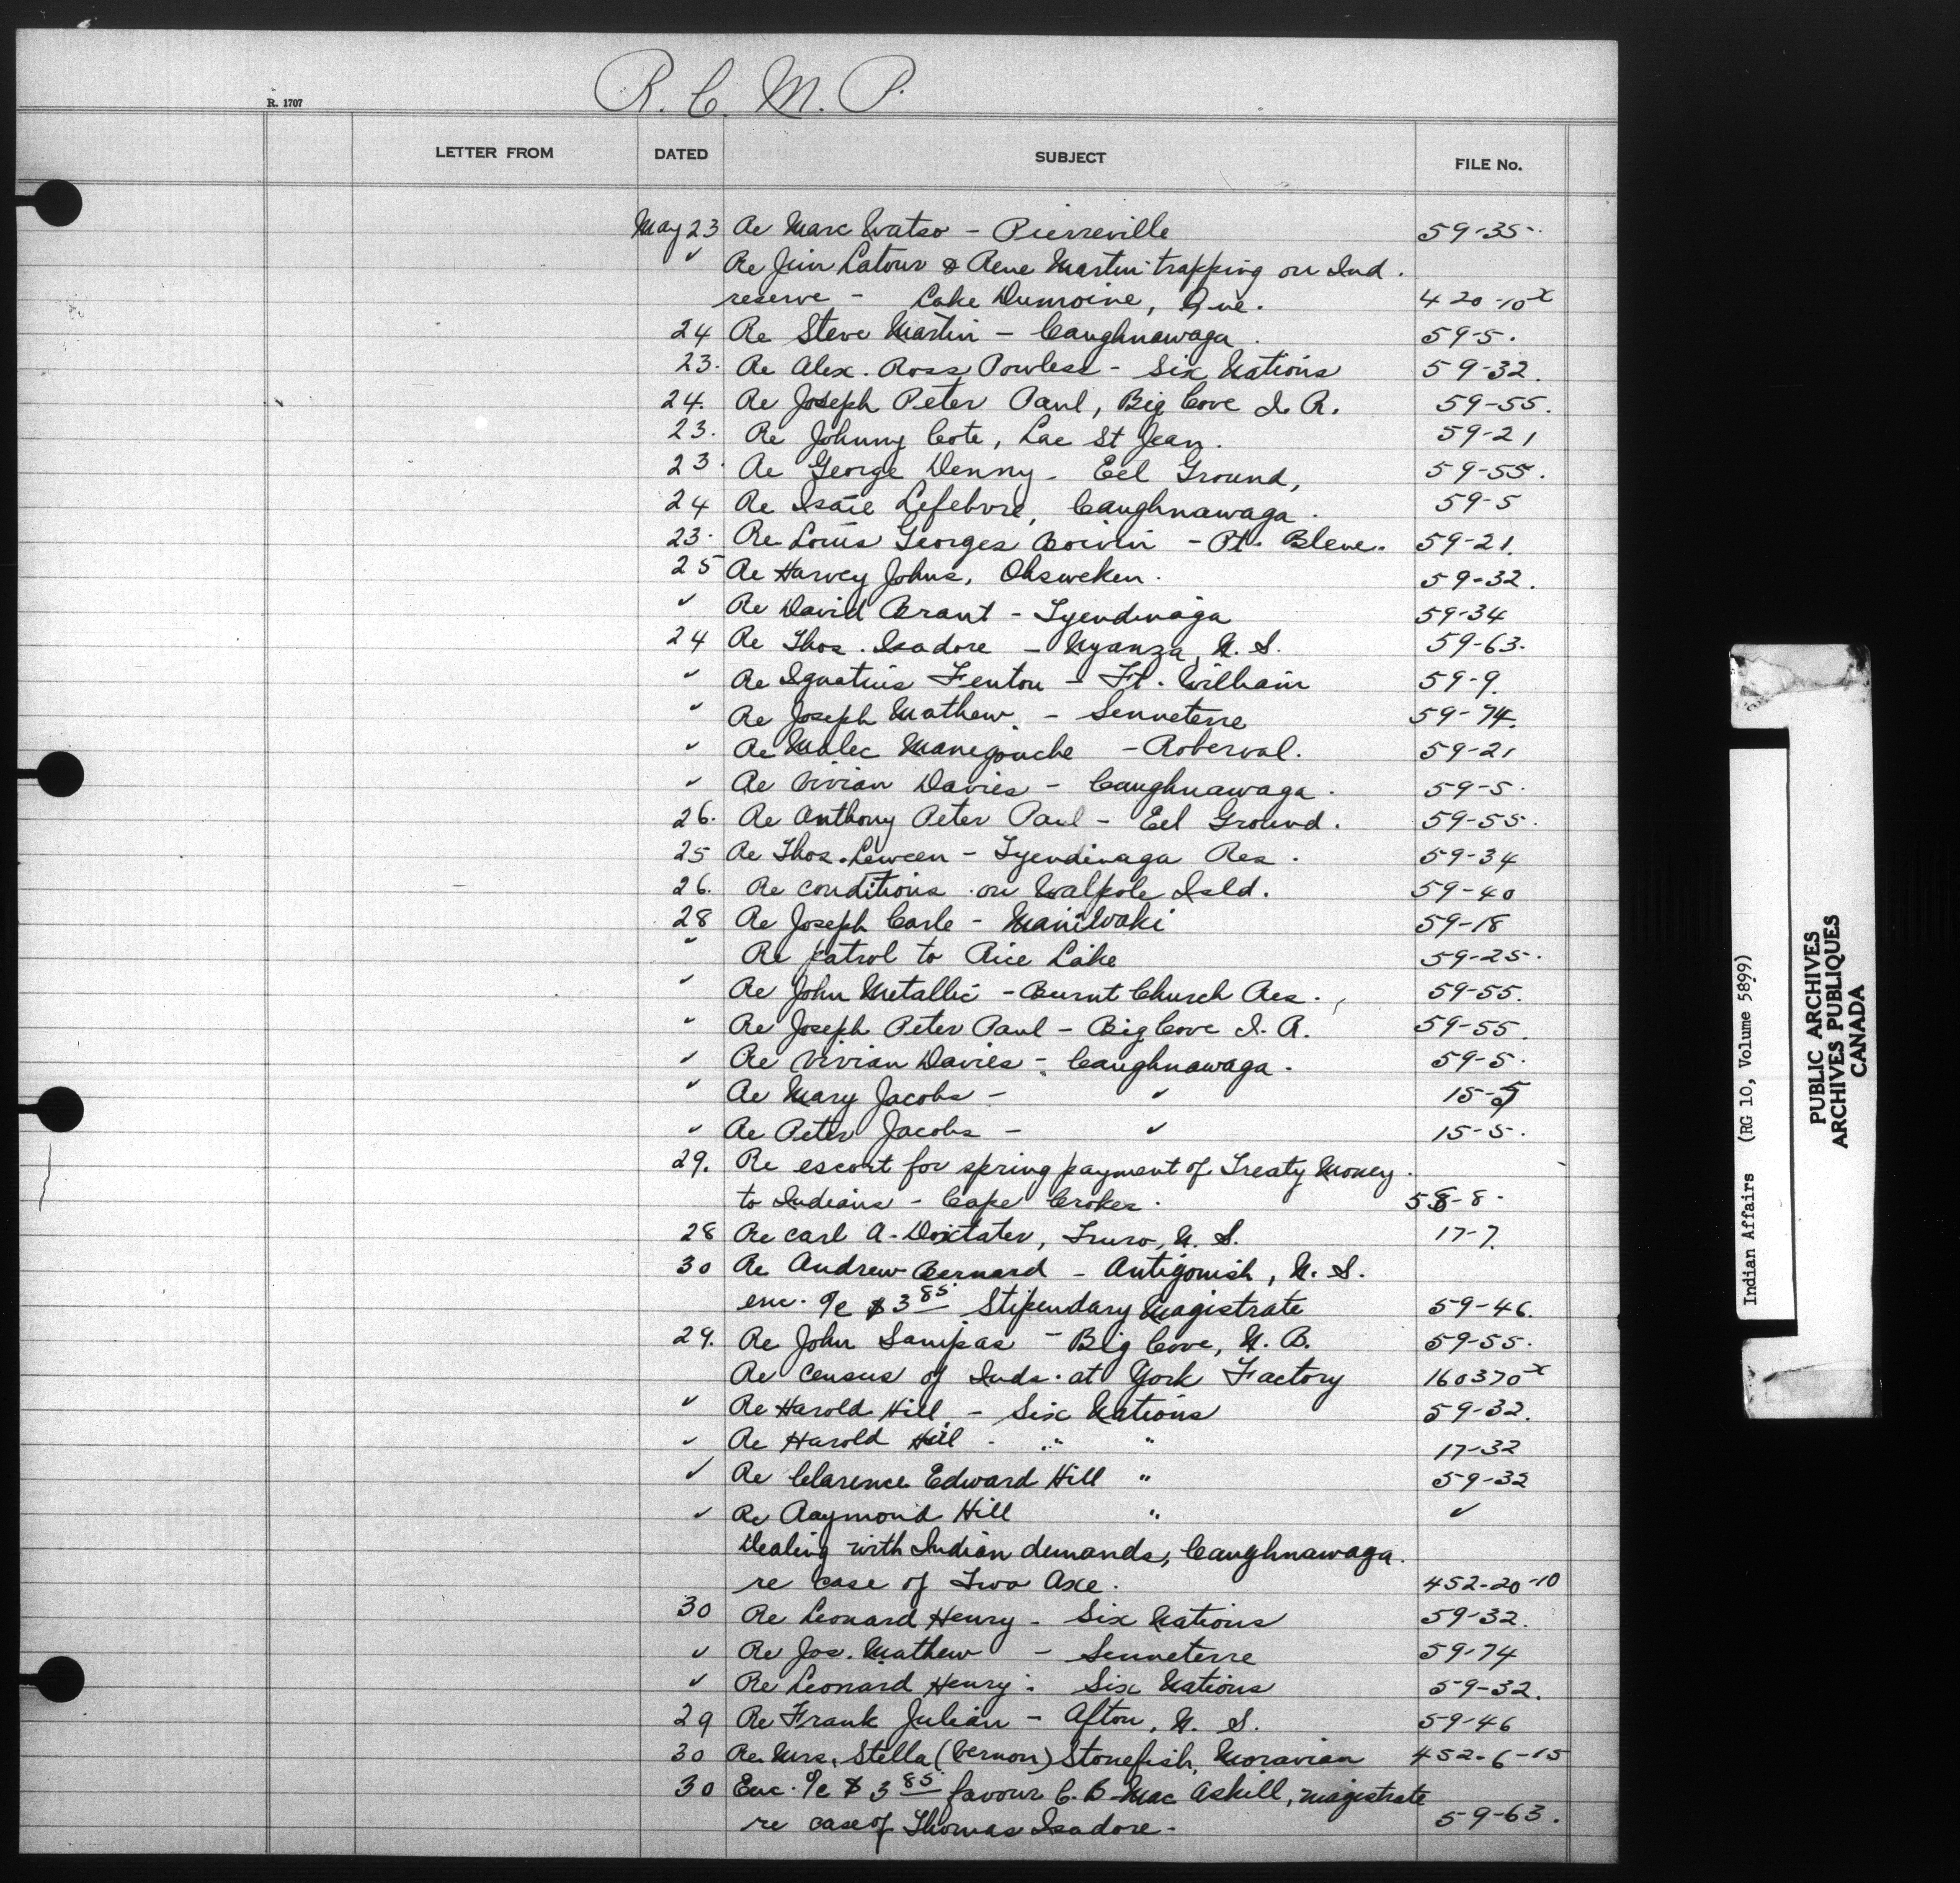 R. C. M. P.
R. 1707
LETTER FROM DATED SUBJECT FILE No.
May 23 Re Marc Watso - Pierreville 59-35.
✓ Re Jim Latour & Rene Martin trapping on Ind.
reserve - Lake Dumoine, Que. 420-10x
24 Re Steve Martin - Caughnawaga. 59-5.
23. Re Alex. Ross Powless - Six Nations 59-32.
24. Re Joseph Peter Paul, Big Cove I. R. 59-55.
23. Re Johnny Cote, Lac St Jean. 59-21
23. Re George Denny - Eel Ground, 59-55.
24 Re Isaie Lefebvre, Caughnawaga. 59-5
23. Re Louis Georges Boivin - Pt. Bleue. 59-21.
25 Re Harvey Johns, Ohsweken. 59-32.
✓ Re David Brant - Tyendinaga 59-34
24 Re Thos. Isadore - Nyanza, N. S. 59-63.
✓ Re Ignatius Fenton - Ft. William 59-9.
✓ Re Joseph Mathew - Senneterre 59-74.
✓ Re Malec Manigouche - Roberval. 59-21
✓ Re Vivian Davies - Caughnawaga. 59-5.
26. Re Anthony Peter Paul - Eel Ground. 59-55.
25 Re Thos. - Tyendinaga Res. 59-34
26. Re conditions on Walpole Isld. 59-40
28 Re Joseph Carle - Maniwaki 59-18
" Re patrol to Rice Lake 59-25.
✓ Re John Metallic - Burnt Church Res. 59-55.
" Re Joseph Peter Paul - Big Cove I. R. 59-55
✓ Re Vivian Davies - Caughnawaga. 59-5.
✓ Re Mary Jacobs - ✓ 15-5
✓ Re Peter Jacobs - ✓ 15-5.
29. Re escort for spring payment of Treaty Money
to Indians - Cape Croker. 58-8.
28 Re Carl A. Doxtater, Truro, N. S. 17-7.
30 Re Andrew Bernard - Antigonish, N. S.
enc. %c $3 85 Stipendary Magistrate 59-46.
29. Re John Sanipas - Big Cove, N. B. 59-55.
Re census of Inds. at York Factory 160370x
✓ Re Harold Hill - Six Nations 59-32.
✓ Re Harold Hill - " " 17-32
✓ Re Clarence Edward Hill " 59-32
✓ Re Raymond Hill " ✓
Dealing with Indian demands, Caughnawaga.
re case of Two Axe. 452-20-10
30 Re Leonard Henry - Six Nations 59-32.
✓ Re Jos. Mathew - Senneterre 59-74
✓ Re Leonard Henry - Six Nations 59-32.
29 Re Frank Julian - Afton, N. S. 59-46
30 Re Mrs. Stella (Vernon) Stonefish, Moravian 452-6-15
30 Enc. %c $3 85 favour C. B. MacAskill, magistrate
re case of Thomas Isadore - 59-63.
Indian Affairs (RG 10, Volume 5899)
PUBLIC ARCHIVES
ARCHIVES PUBLIQUES
CANADA